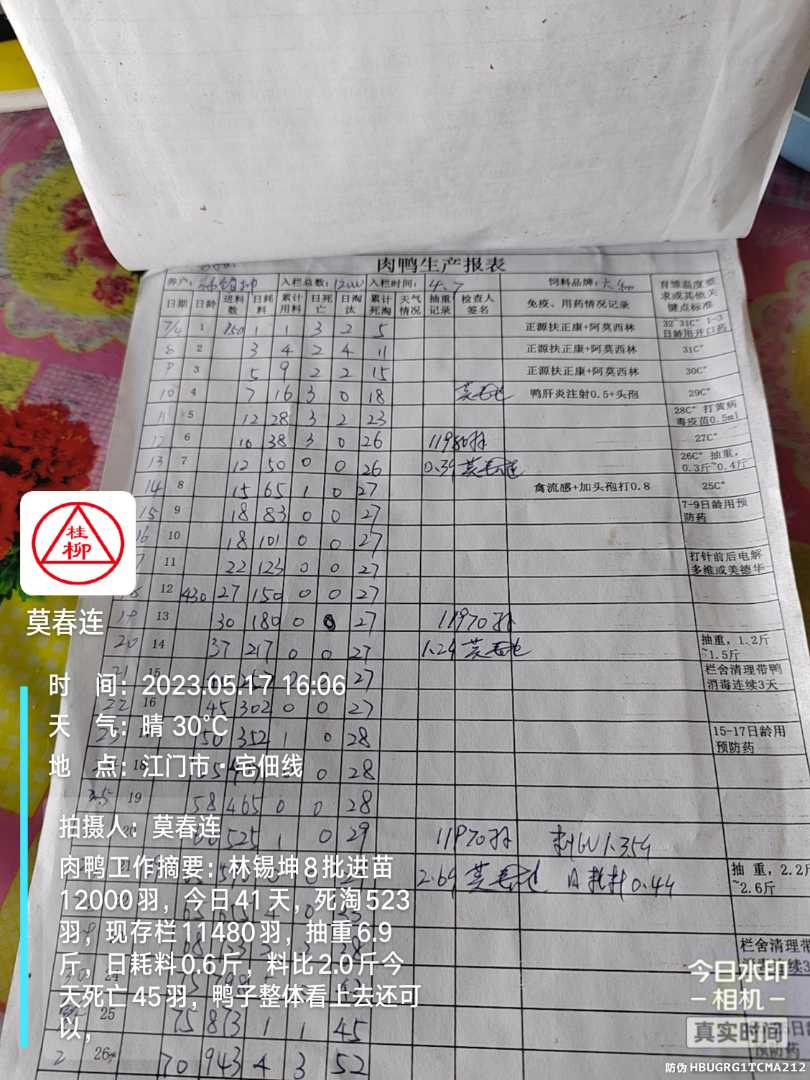 肉鸭生产报表
养户： 入栏总数：12000 入栏时间：4.7 饲料品牌： 育雏温度要求或其他关键点标准
日期 日龄 进料数 日耗料 累计用料 日死亡 日淘汰 累计死淘 天气情况 抽重记录 检查人签名 免疫、用药情况记录
7/4 1 850 1 1 3 2 5 正源扶正康+阿莫西林 32~31C° 1-3日龄用开口药
8 2 3 4 2 4 11 正源扶正康+阿莫西林 31C°
9 3 5 9 2 2 15 正源扶正康+阿莫西林 30C°
10 4 7 16 3 0 18 莫春连 鸭肝炎注射0.5+头孢 29C°
11 5 12 28 3 2 23 28C° 打黄病毒疫苗0.5ml
12 6 10 38 3 0 26 11980 27C°
13 7 12 50 0 0 26 0.39 莫春连 26C° 抽重，0.3斤~0.4斤
14 8 15 65 1 0 27 禽流感+加头孢打0.8 25C°
15 9 18 83 0 0 27 7-9日龄用预防药
16 10 18 101 0 0 27
11 22 123 0 0 27 打针前后电解多维或美德华
18 12 430 27 150 0 0 27
19 13 30 180 0 0 27 11970
20 14 37 217 0 0 27 1.24 莫春连 抽重，1.2斤~1.5斤
21 15 0 0 27 栏舍清理带鸭消毒连续3天
22 16 45 302 0 0 27
50 352 1 0 28 15-17日龄用预防药
18 0 28
19 58 465 0 0 28
525 1 0 29 11970 1.354
2.64 莫春连 0.44 抽 重，2.2斤~2.6斤
栏舍清理带
25 75 873 1 1 45
2 26 70 943 4 3 52
桂柳
莫春连
时 间：2023.05.17 16:06
天 气：晴 30℃
地 点：江门市·宅佃线
拍摄人：莫春连
肉鸭工作摘要：林锡坤8批进苗
12000羽，今日41天，死淘523
羽，现存栏11480羽，抽重6.9
斤，日耗料0.6斤，料比2.0斤今
天死亡45羽，鸭子整体看上去还可
以，
今日水印
相机
真实时间
防伪 HBUGRG1TCMA212